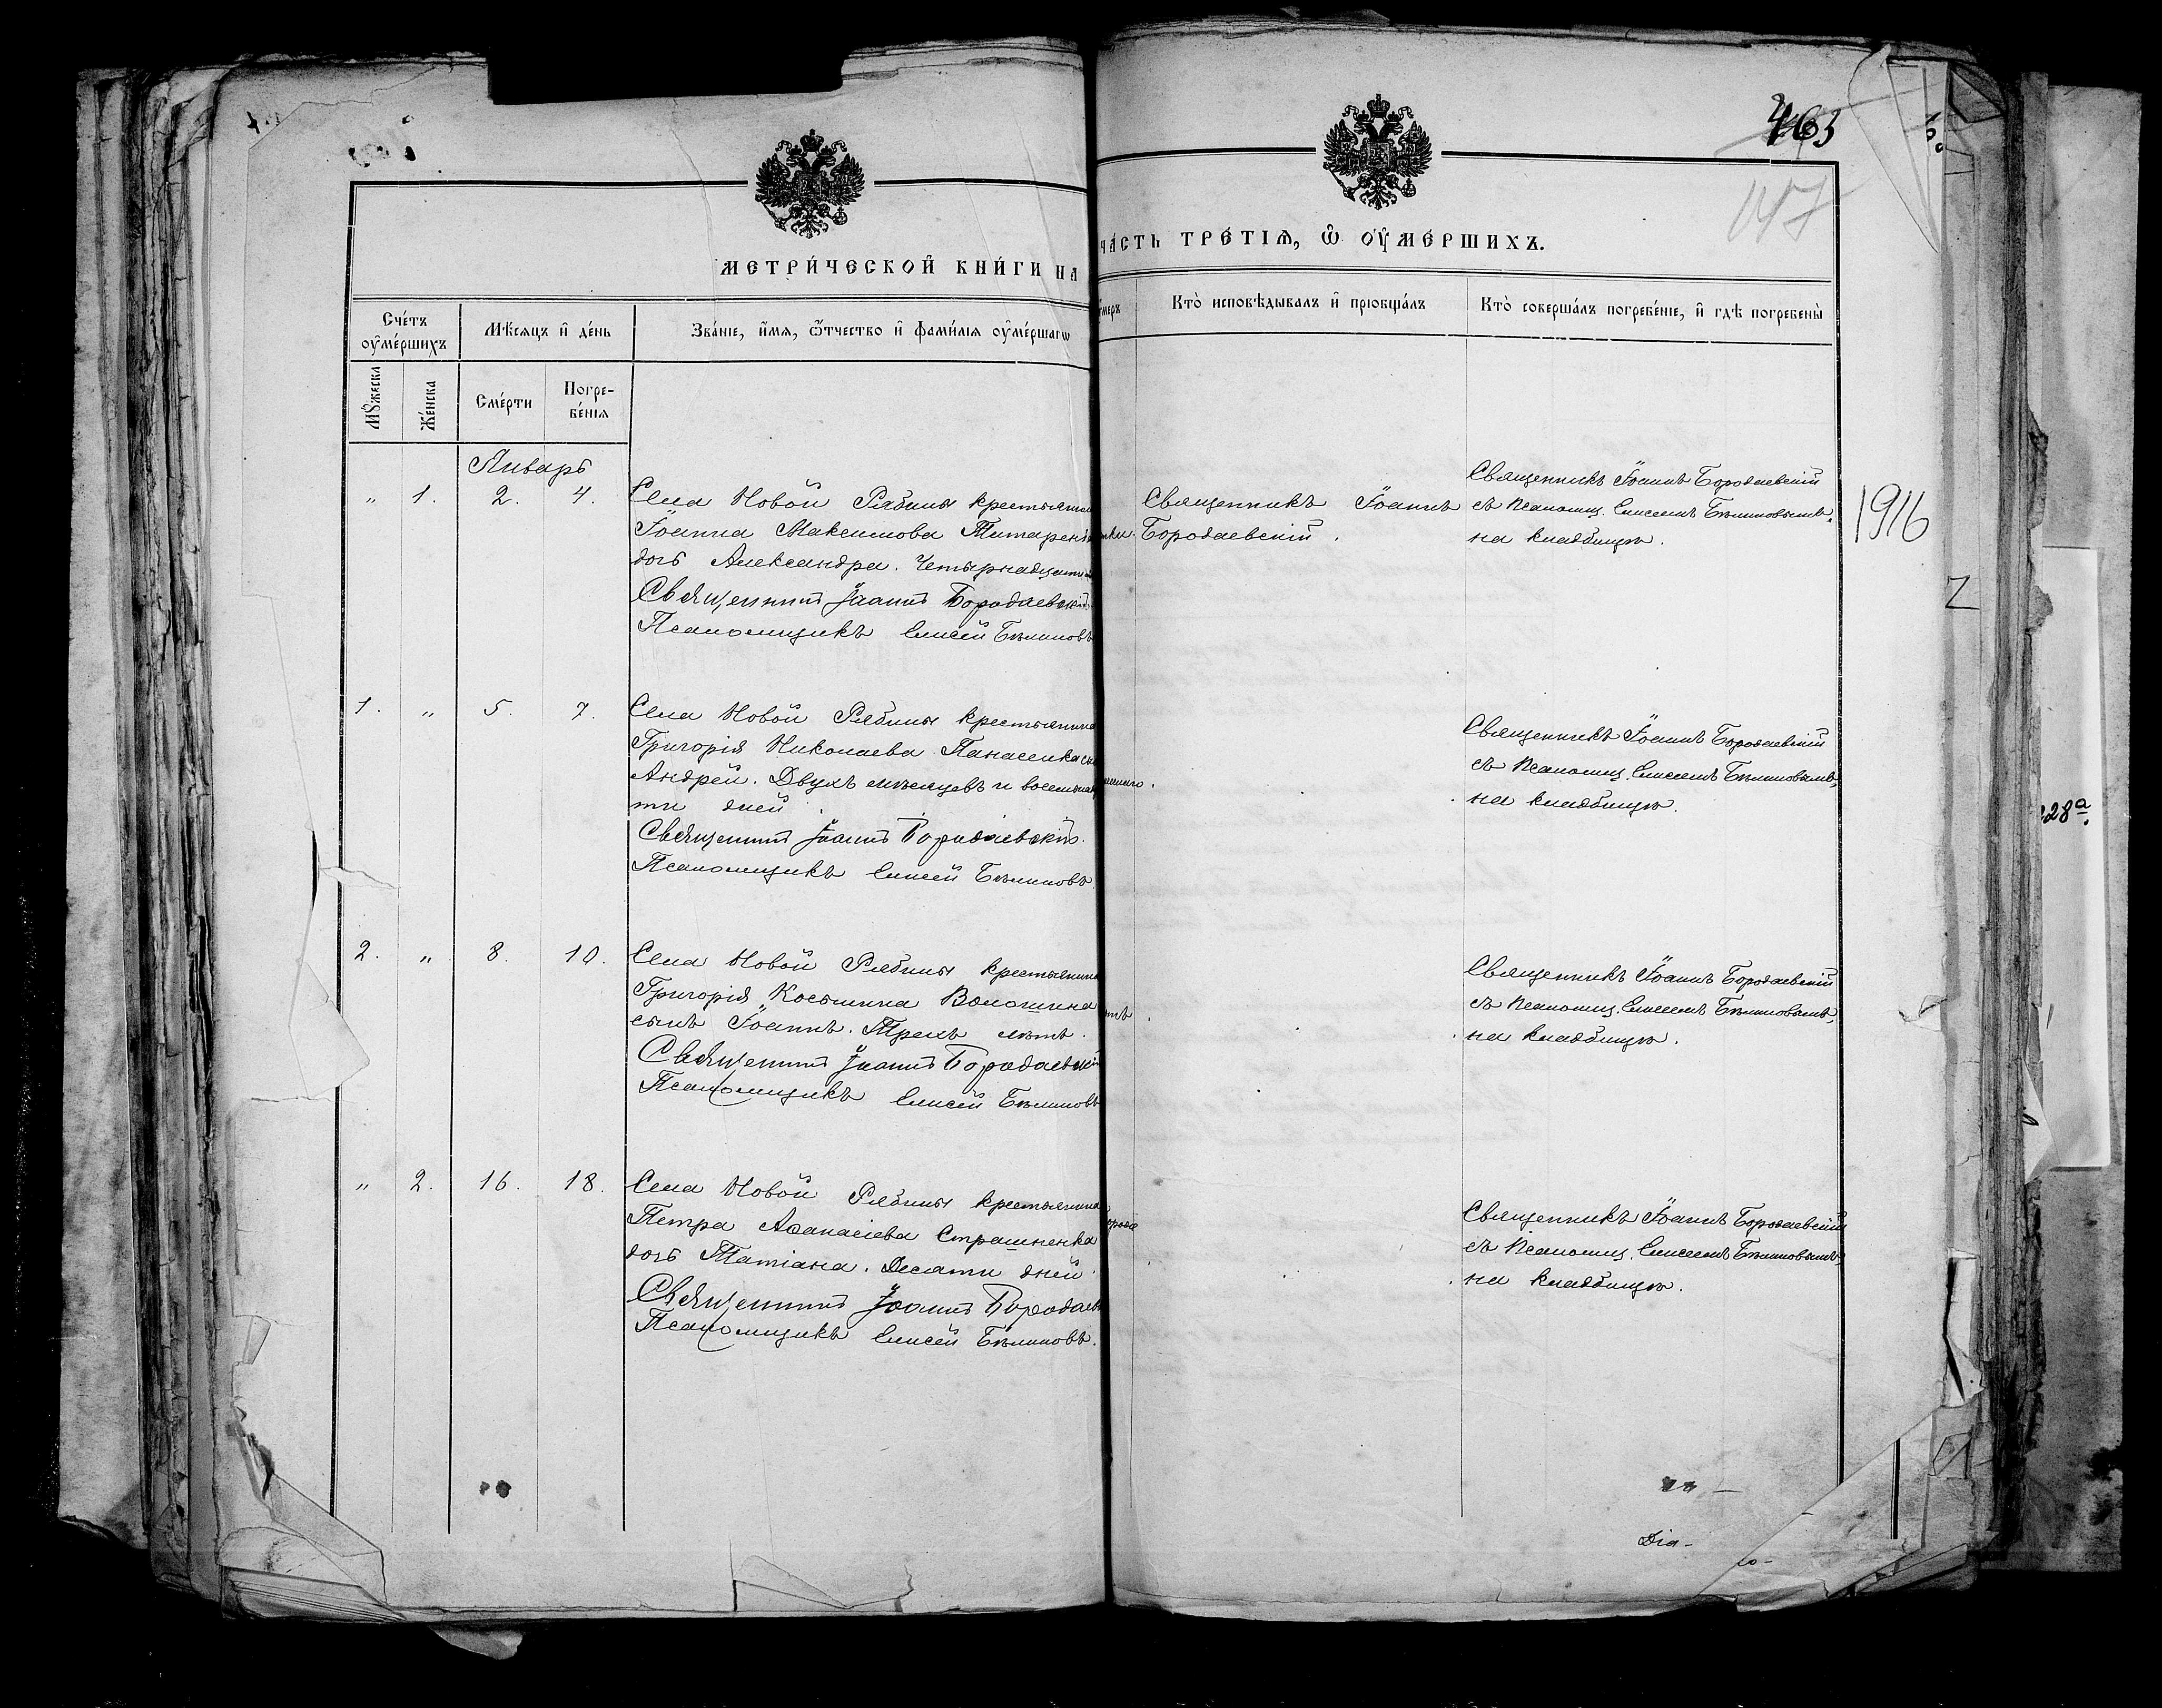 463
147
МЕТРИ́ЧЕСКОЙ КНИ́ГИ НА
ЧА́СТЬ ТРЕ́ТІѦ, Ѽ ОУ҆МЕ́РШИХЪ.
Сче́тъ оу҆ме́ршихъ
Мѣ́сяцъ и҆ де́нь
Зва́ніе, и҆́мя, ѻ҆́тчество и҆ фами́лія оу҆ме́ршагѡ
Кто̀ исповѣ́дывалъ и҆ пріобща́лъ
Кто̀ соверша́лъ погребе́ніе, и҆ гдѣ̀ погребены̀
Мꙋ́жеска
Же́нска
Сме́рти
Погре-
бе́нія
Январь
" 1. 2. 4.
Села Новой Рябины крестьянина
Іоанна Максимова Титаренка
дочь Александра. Четырнадцати
Священникъ Іоаннъ Бородаевскій
Псаломщикъ Елисей Бѣлиновъ
Священникъ Іоаннъ
Бородаевскій.
Священникъ Іоаннъ Бородаевскій
съ псаломщ. Елисеемъ Бѣлиновымъ,
на кладбищѣ.
1916
1. " 5. 7.
Села Новой Рябины крестьянина
Григорія Николаева Панасенка сынъ
Андрей. Двухъ мѣсяцевъ и восемнадца
ти дней.
Священникъ Іоаннъ Бородаевскій.
Псаломщикъ Елисей Бѣлиновъ
Священникъ Іоаннъ Бородаевскій
съ псаломщ. Елисеемъ Бѣлиновымъ,
на кладбищѣ.
28а.
2. " 8. 10.
Села Новой Рябины крестьянина
Григорія Косьмина Волошина
сынъ Іоаннъ. Трехъ лѣтъ.
Священникъ Іоаннъ Бородаевскій
Псаломщикъ Елисей Бѣлиновъ
Священникъ Іоаннъ Бородаевскій
съ псаломщ. Елисеемъ Бѣлиновымъ,
на кладбищѣ.
" 2. 16. 18.
Села Новой Рябины крестьянина
Петра Аѳанасіева Страшненка
дочь Татіана. Десяти дней.
Священникъ Іоаннъ Бородаев
Псаломщикъ Елисей Бѣлиновъ.
Священникъ Іоаннъ Бородаевскій
съ псаломщ. Елисеемъ Бѣлиновымъ,
на кладбищѣ.
Діа-